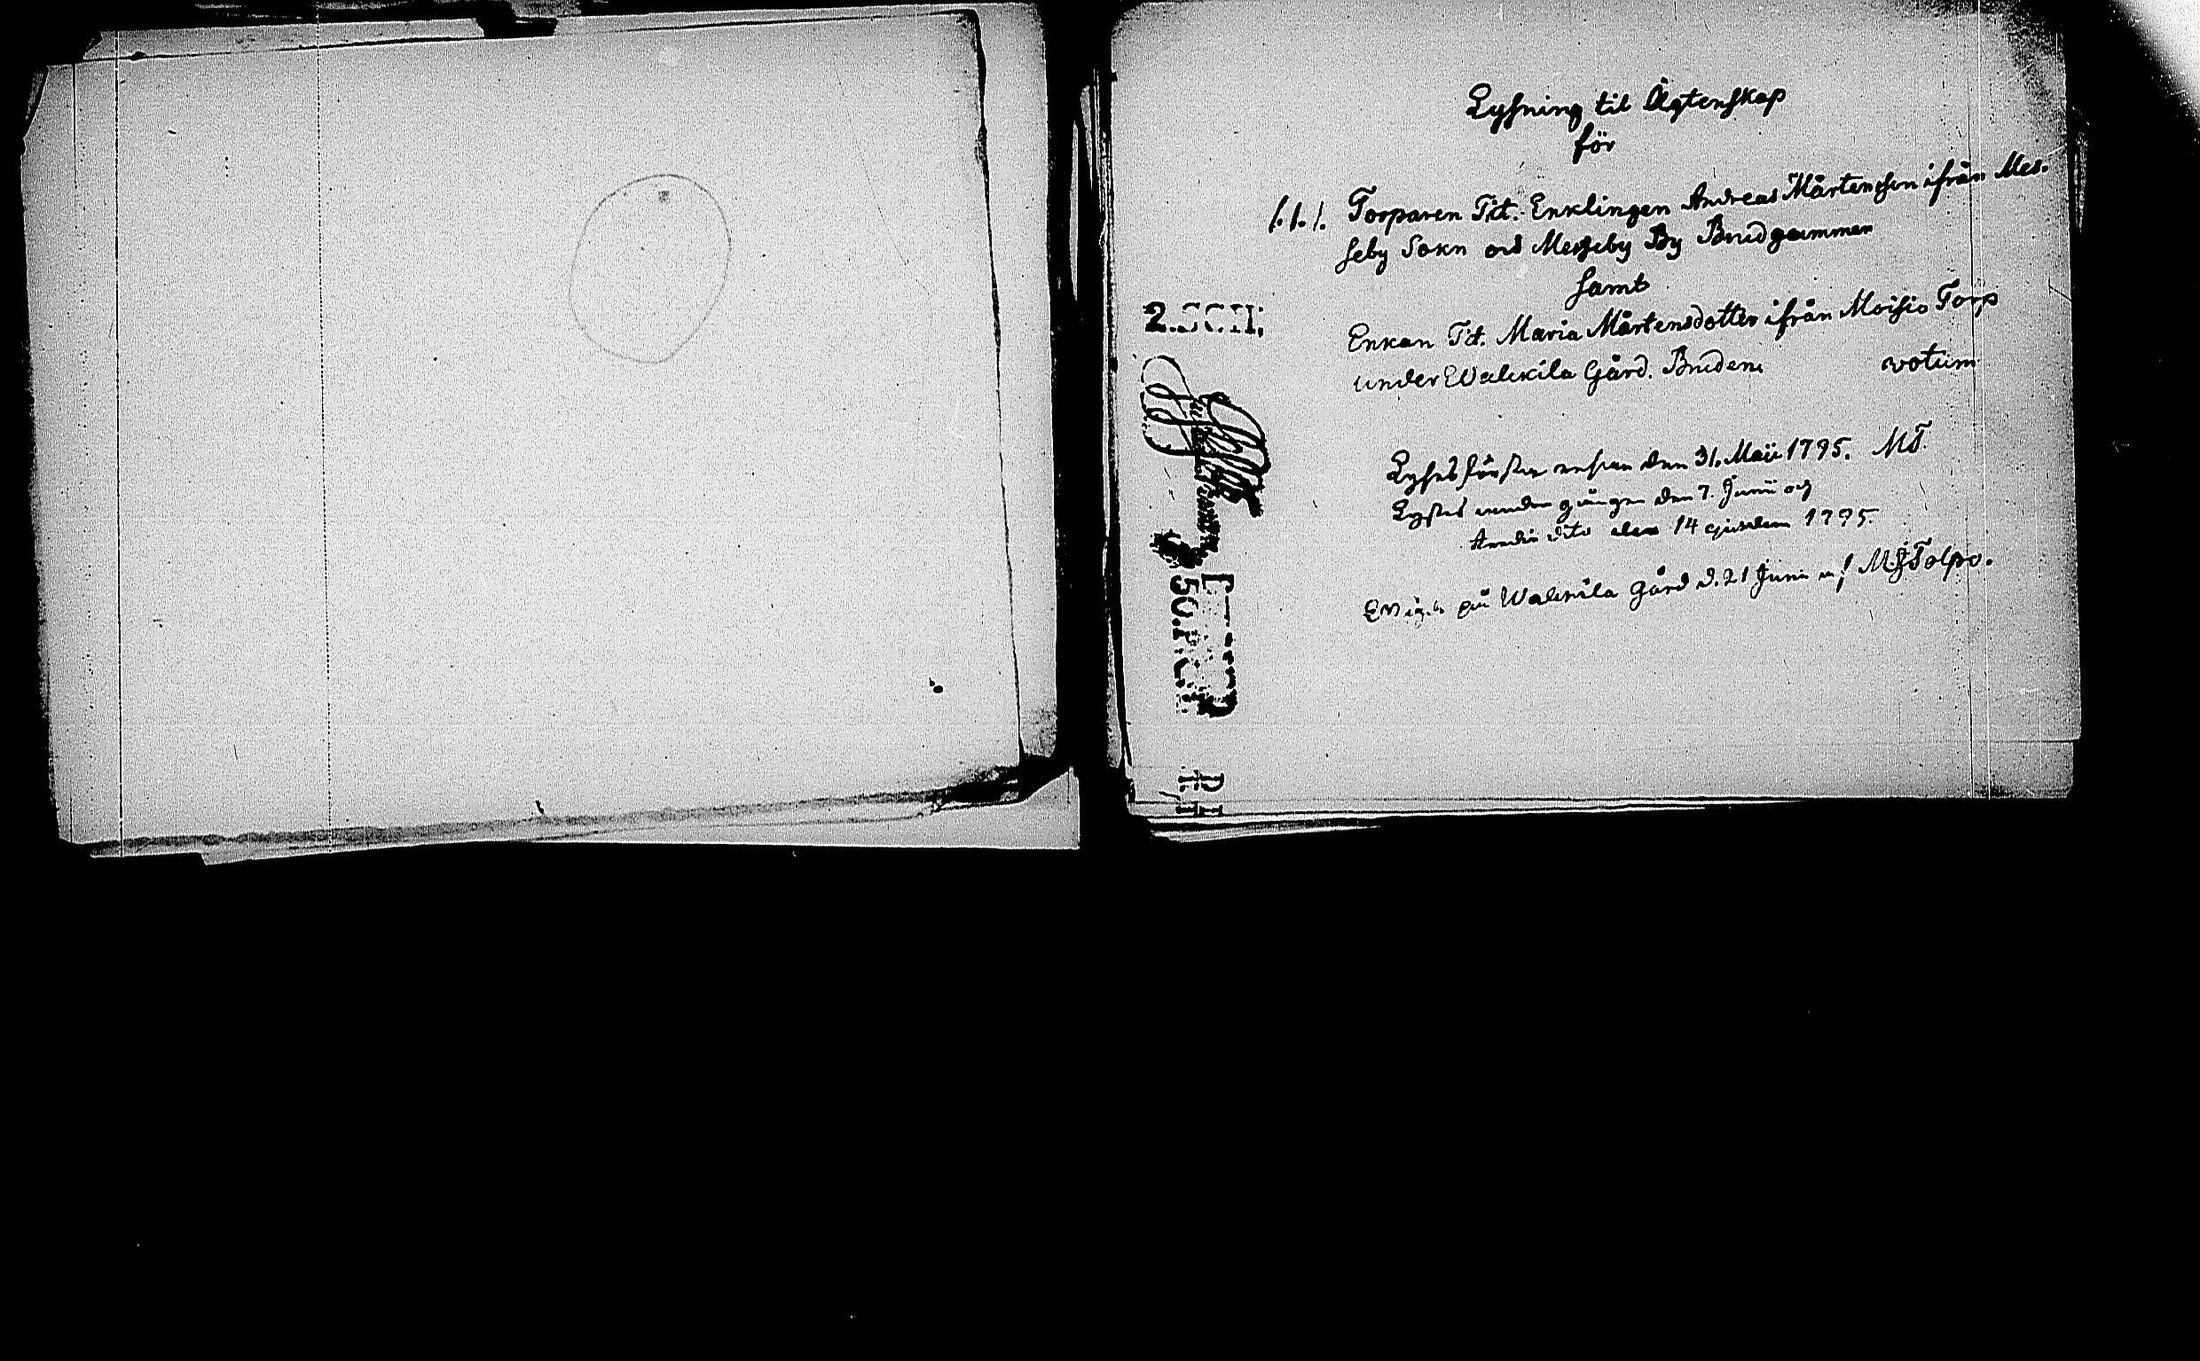 Lysning til Ägtenskap
för
1.1.1. Torparen Tit. Enklingen Andreas Mårtensson ifrån Mes-
seby Sokn och Messeby By Brudgummen
samt
Enkan Tit. Maria Mårtensdotter ifrån Moisio Torp
under Walkila Gård. Bruden. votum
Lystes första resan den 31. Maii 1795. MT.
Lystes andra gången den 7. Junii och
tredie dito den 14 ejusdem 1795.
på Walkila Gård d. 21 Junii af Tolpo.
2.SCH;
50.